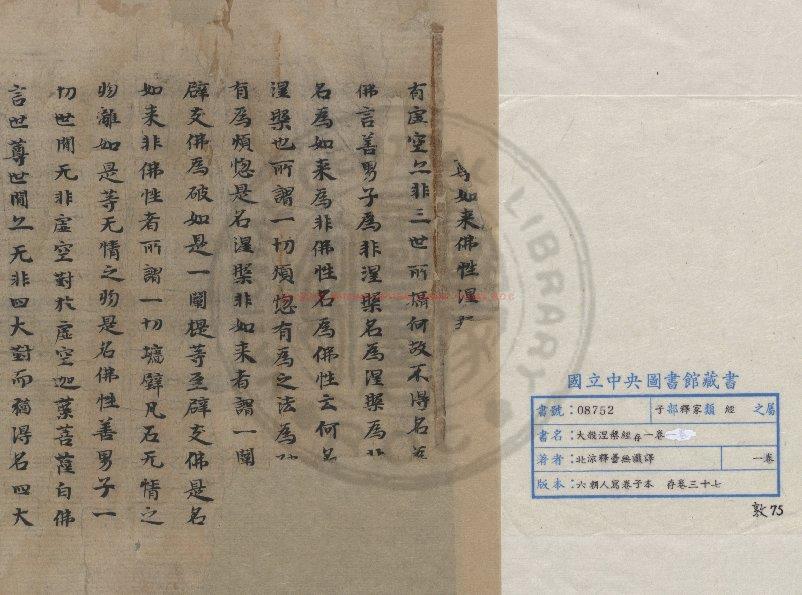 如來佛性涅
有虛空亦非三世所攝何故不得名為
佛言善男子為非涅槃名為涅槃為非
名為如來為非佛性名為佛性云何名
涅槃也所謂一切煩惱有為之法為破
有為煩惱是名涅槃非如來者謂一闡
辟支佛為破如是一闡提等至辟支佛是名
如來非佛性者所謂一切墻壁瓦石无情之
物離如是等无情之物是名佛性善男子一
切世間无非虛空對於虛空迦葉菩薩白佛
言世尊世間亦无非四大對而猶得名四大
國立中央圖書館藏書
書號：08752 子部釋家類 經 之屬
書名：大般涅槃經存一卷
著者：北涼釋曇無讖譯 一卷
版本：六朝人寫卷子本 存卷三十七
敦75